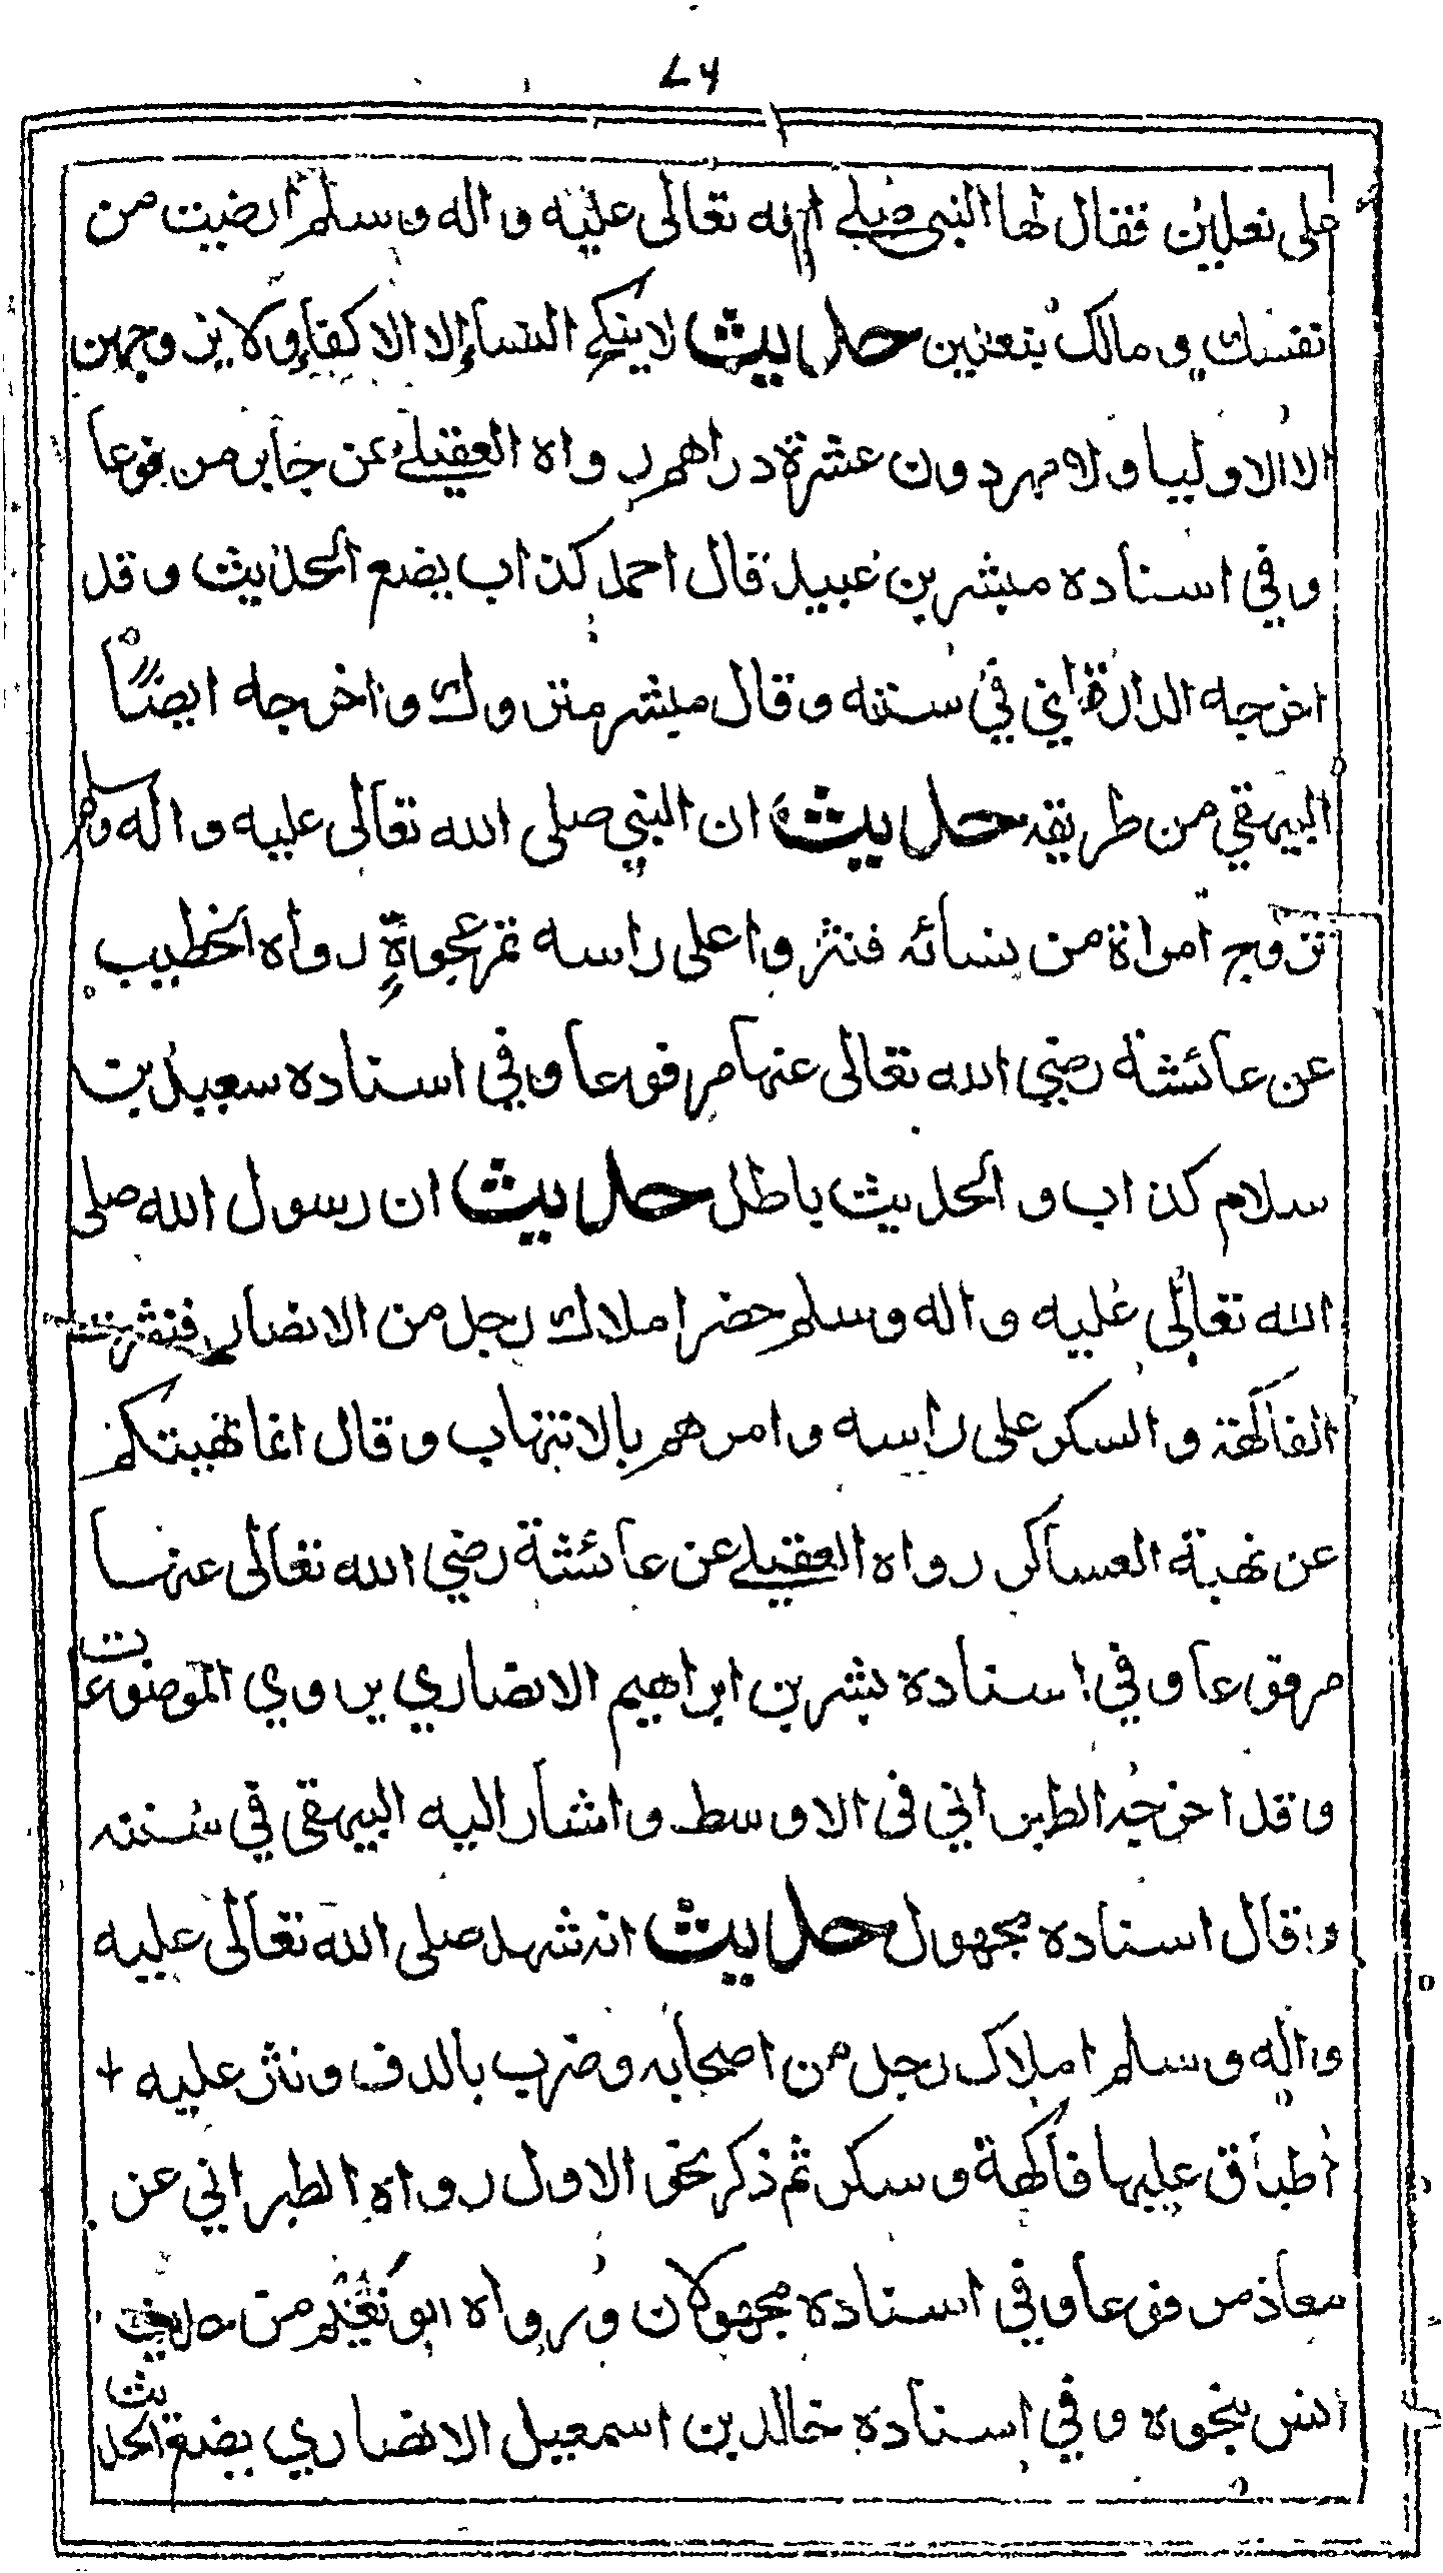 ٧٦
على نعلين فقال لها النبي صلى الله تعالى عليه واله وسلم ارضيت من
نفسك ومالك بنعلين حديث لاينكح النساء الا الاكفاء ولا يزوجهن
الا الاوليا ولا مهر دون عشرة دراهم رواه العقيلي عن جابر مرفوعا
وفي اسناده مبشر بن عبيد قال احمد كذاب يضع الحديث وقد
اخرجه الدارقطني في سننه وقال مبشر متروك واخرجه ايضاً
البيهقي من طريقه حديث ان النبي صلى الله تعالى عليه واله وسلم
تزوج امراة من نسائه فنثروا على راسه تمر عجوةٍ رواه الخطيب
عن عائشة رضي الله تعالى عنها مرفوعا وفي اسناده سعيد بن
سلام كذاب والحديث باطل حديث ان رسول الله صلى
الله تعالى عليه واله وسلم حضر املاك رجل من الانصار فنثرت
الفاكهة والسكر على راسه وامرهم بالانتهاب وقال انما نهيتكم
عن نهبة العساكر رواه العقيلي عن عائشة رضي الله تعالى عنها
مرفوعا وفي اسناده بشر بن ابراهيم الانصاري يروي الموضوعات
وقد اخرجه الطبراني في الاوسط واشار اليه البيهقي في سننه
وقال اسناده مجهول حديث انه شهد صلى الله تعالى عليه
واله وسلم املاك رجل من اصحابه وضرب بالدف ونثر عليه
اطباق عليها فاكهة وسكر ثم ذكر نحو الاول رواه الطبراني عن
معاذ مرفوعا وفي اسناده مجهولان ورواه ابو نعيم من حديث
انس بنحوه وفي اسناده خالد بن اسمعيل الانصاري يضع الحديث